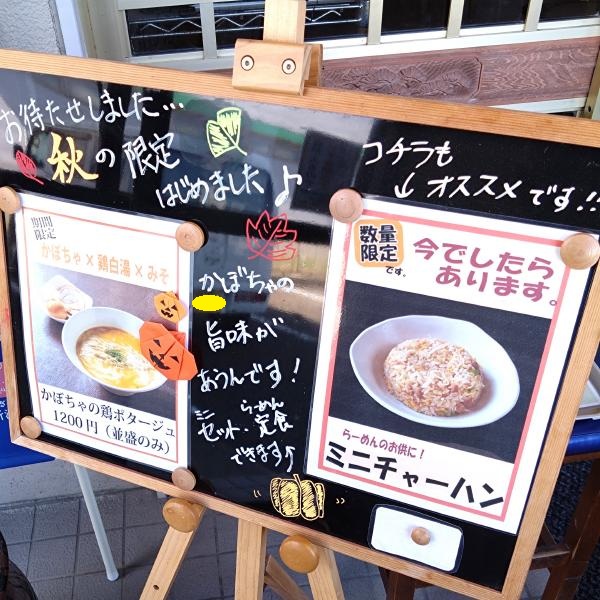 お待たせしました…
秋の限定
はじめました♪
期間
限定
かぼちゃ×鶏白湯×みそ
かぼちゃの鶏ポタージュ
1200円（並盛のみ）
かぼちゃの
旨味が
あうんです！
ミニ
セット・らーめん定食
できます♪
コチラも
↓オススメです!!
数量
限定
です。
今でしたら
あります。
らーめんのお供に！
ミニチャーハン